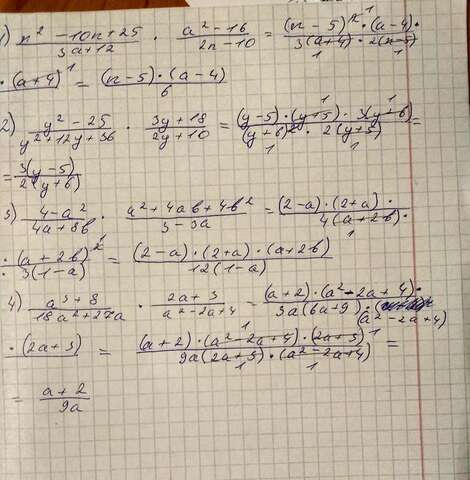 1) (n² - 10n + 25)/(3a + 12) · (a² - 16)/(2n - 10) = ((n - 5)² · (a - 4) ·)/(3(a + 4) · 2(n - 5))
· (a + 4) = ((n - 5) · (a - 4))/6
2) (y² - 25)/(y² + 12y + 36) · (3y + 18)/(2y + 10) = ((y - 5) · (y + 5) · 3(y + 6))/((y + 6)² · 2(y + 5)) =
= 3(y - 5)/2(y + 6)
3) (4 - a²)/(4a + 8b) · (a² + 4ab + 4b²)/(3 - 3a) = ((2 - a) · (2 + a) ·)/(4(a + 2b) ·)
· (a + 2b)²/3(1 - a) = ((2 - a) · (2 + a) · (a + 2b))/(12(1 - a))
4) (a³ + 8)/(18a² + 27a) · (2a + 3)/(a² - 2a + 4) = ((a + 2) · (a² - 2a + 4) ·)/(3a(6a + 9) · (a² - 2a + 4))
· (2a + 3) = ((a + 2) · (a² - 2a + 4) · (2a + 3))/(9a(2a + 3) · (a² - 2a + 4)) =
= (a + 2)/9a